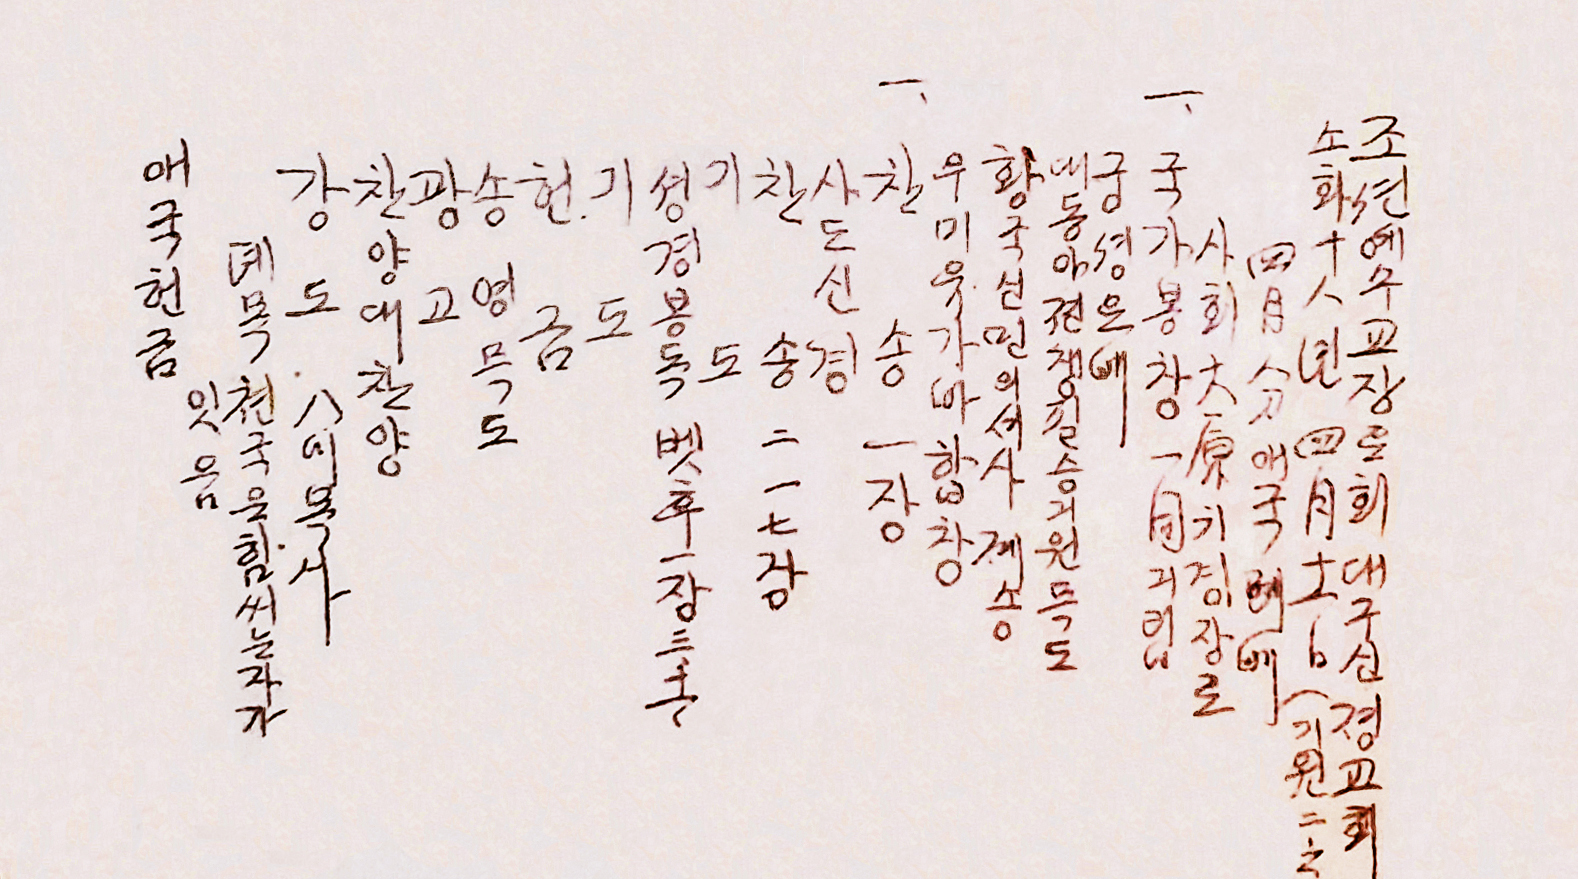 조션예수교장로회대구신경교회
소화十八년四月十一日(기원二
四月分애국례배
사회大原기정장로
一、국가봉창一同긔립
궁셩요배
대동아전쟁필승긔원묵도
황국신민의셔사 졔송
우미유가바 합창
一、찬송一장
사도신경
찬송二一七장
기도
셩경봉독 벳후一장三절
기도
헌금
송영묵도
광고
찬양대찬양
강도 八미목사
뎨목 천국은힘씨는자가
잇음
애국헌금